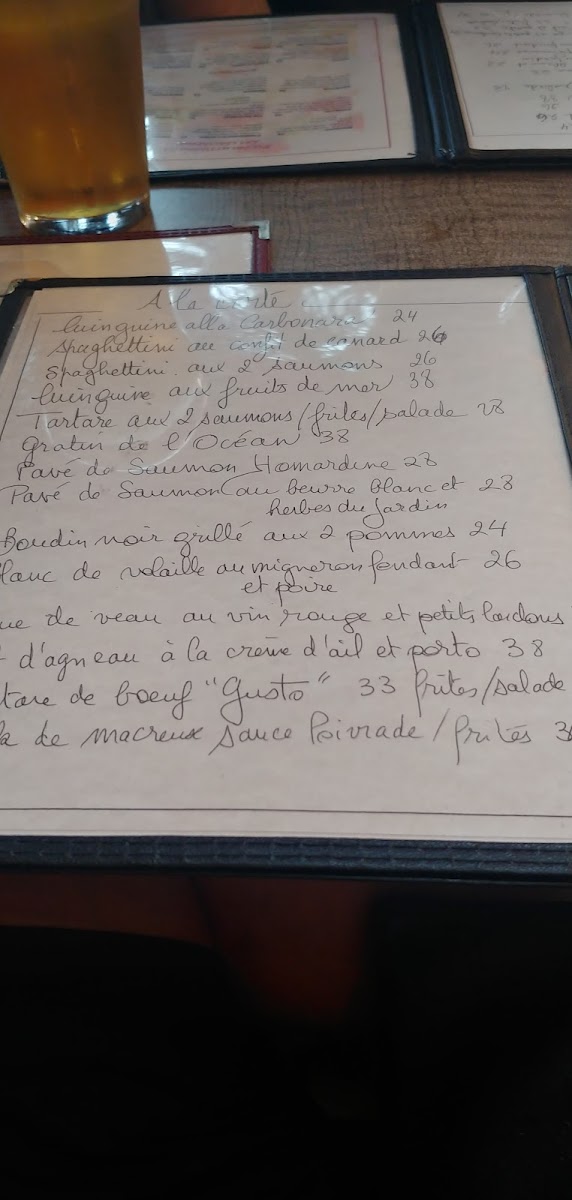 A la carte
Linguine alla Carbonara 24
Spaghettini au confit de canard 26
Spaghettini aux 2 saumons 26
Linguine aux fruits de mer 38
Tartare aux 2 saumons/frites/salade 28
Gratin de l'Océan 38
Pavé de Saumon Homardine 28
Pavé de Saumon au beurre blanc et 28
herbes du Jardin
Boudin noir grillé aux 2 pommes 24
lanc de volaille au migneron fondant 26
et poire
ue de veau au vin rouge et petits lardons
d'agneau à la crème d'ail et porto 38
tare de boeuf "Gusto" 33 frites/salade
de macreuse sauce Poivrade/frites